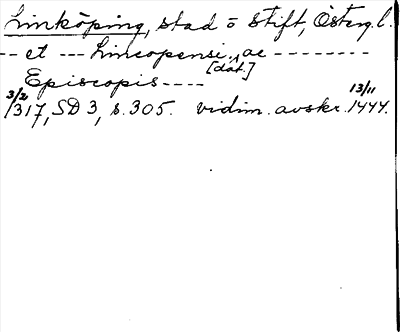 Linköping, stad o Stift, Österg.l.
-- et --- Lincopensi, ac ---------
[dat.]
Episcopis ----
3/2 1317, SD 3, s. 305. vidim. avskr. 13/11 1444.